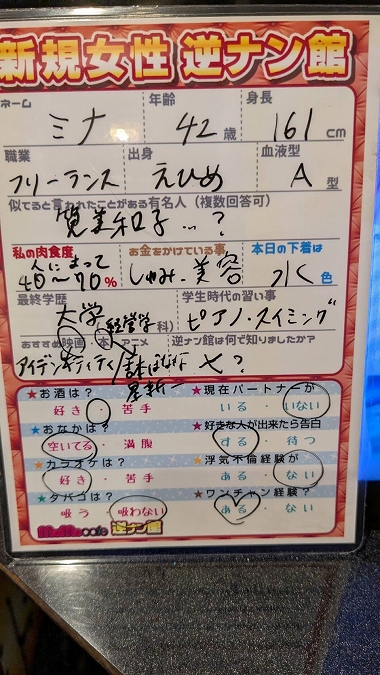 新規女性 逆ナン館
ネーム 年齢 身長
ミナ 42歳 161cm
職業 出身 血液型
フリーランス えひめ A型
似てると言われたことがある有名人（複数回答可）
筧美和子…?
私の肉食度 お金をかけている事 本日の下着は
人によって
40〜70% しゅみ・美容 水色
最終学歴 学生時代の習い事
大学 経営学科) ピアノ・スイミング
おすすめ映画・本・アニメ 逆ナン館は何で知りましたか?
アイデンティティ/ X?
星新一
★お酒は? ★現在パートナーが
好き・苦手 いる・いない
★おなかは? ★好きな人が出来たら告白
空いてる・満腹 する・待つ
★カラオケは? ★浮気不倫経験が
好き・苦手 ある・ない
★タバコは? ★ワンチャン経験?
吸う・吸わない ある・ない
MoMo cafe 逆ナン館